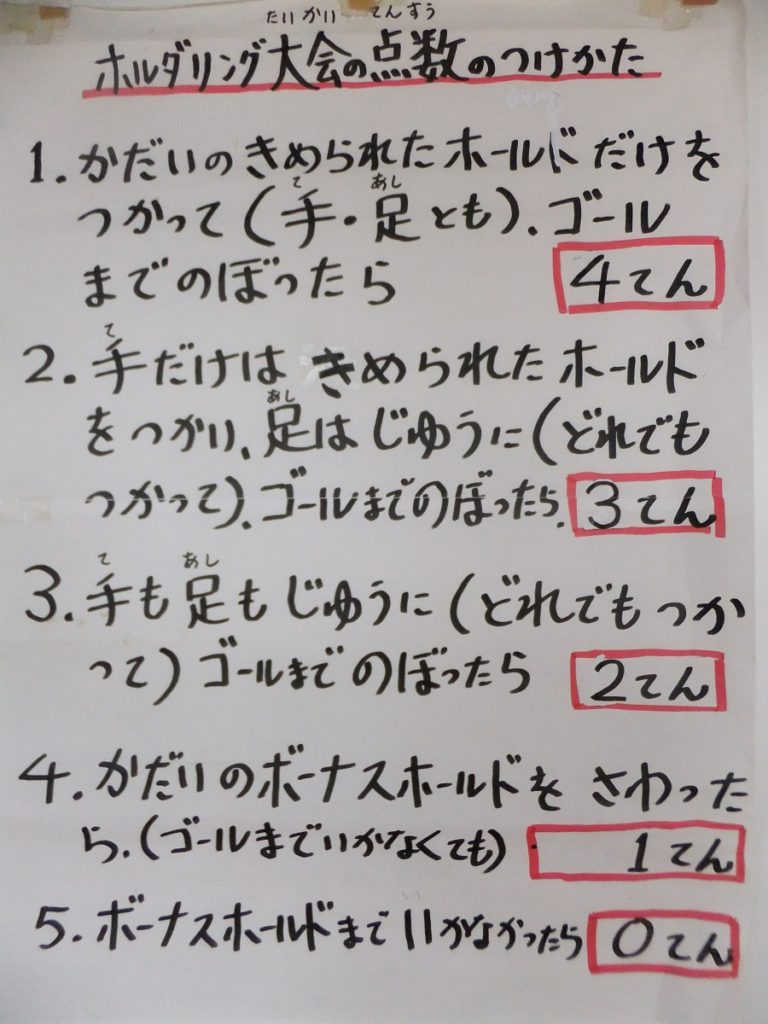 たいかい てんすう
ホルダリング大会の点数のつけかた
1. かだいのきめられたホールドだけを
て あし
つかって(手・足とも)、ゴール
までのぼったら 4てん
て
2. 手だけは きめられたホールド
あし
をつかい、足はじゆうに(どれでも
つかって)、ゴールまでのぼったら、3てん
て あし
3. 手も足もじゆうに(どれでもつか
って)ゴールまでのぼったら 2てん
4. かだいのボーナスホールドをさわった
ら、(ゴールまでいかなくても) 1てん
5. ボーナスホールドまでいかなかったら 0てん